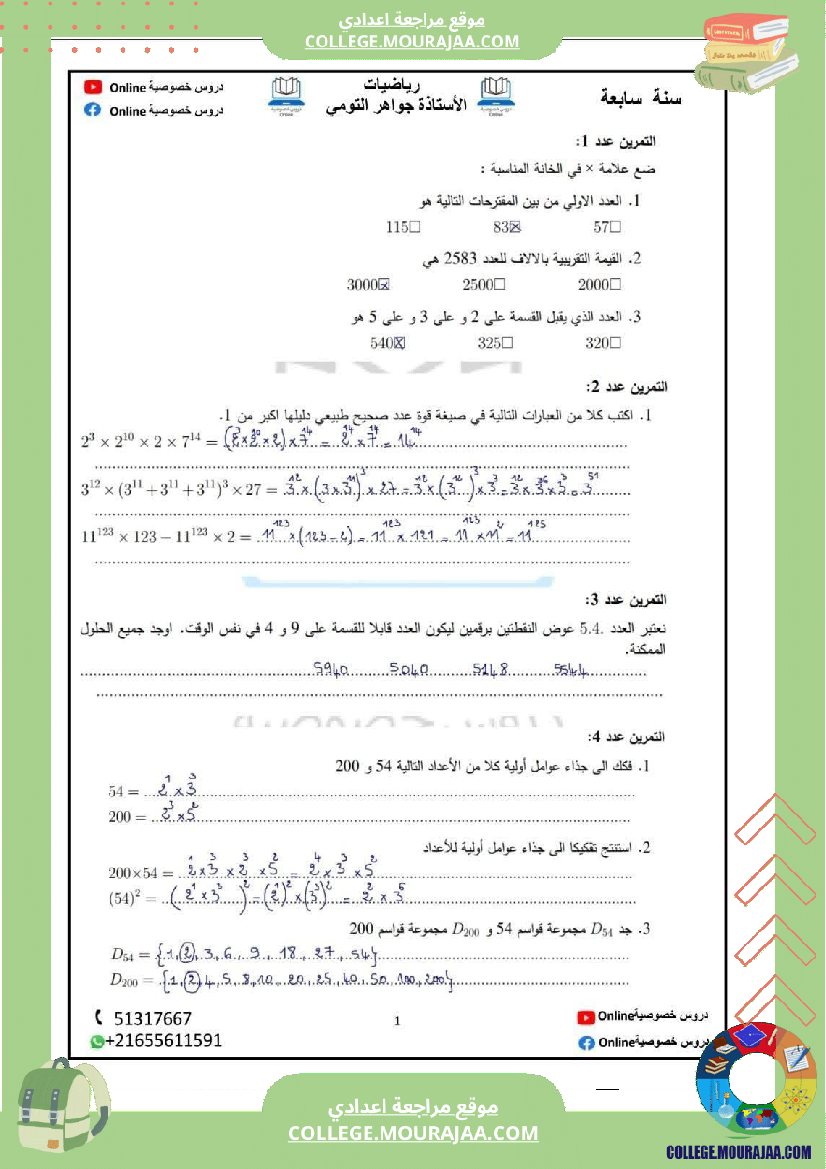 موقع مراجعة اعدادي
COLLEGE.MOURAJAA.COM
سنة سابعة
رياضيات
الأستاذة جواهر التومي
دروس خصوصية Online
دروس خصوصية Online
التمرين عدد 1:
ضع علامة × في الخانة المناسبة :
1. العدد الاولي من بين المقترحات التالية هو
57☐ 83☒ 115☐
2. القيمة التقريبية بالالاف للعدد 2583 هي
2000☐ 2500☐ 3000☒
3. العدد الذي يقبل القسمة على 2 و على 3 و على 5 هو
320☐ 325☐ 540☒
التمرين عدد 2:
1. اكتب كلا من العبارات التالية في صيغة قوة عدد صحيح طبيعي دليلها اكبر من 1.
2³ × 2¹⁰ × 2 × 7¹⁴ = (2³×2¹⁰×2)×7¹⁴ = 2¹⁴×7¹⁴ = 14¹⁴
3¹² × (3¹¹ + 3¹¹ + 3¹¹)³ × 27 = 3¹²×(3×3¹¹)³×27 = 3¹²×(3¹²)³×3³ = 3¹²×3³⁶×3³ = 3⁵¹
11¹²³ × 123 − 11¹²³ × 2 = 11¹²³×(123−2) = 11¹²³×121 = 11¹²³×11² = 11¹²⁵
التمرين عدد 3:
نعتبر العدد .5.4 عوض النقطتين برقمين ليكون العدد قابلا للقسمة على 9 و 4 في نفس الوقت. اوجد جميع الحلول
الممكنة.
5940 5040 5148 5544
التمرين عدد 4:
1. فكك الى جذاء عوامل أولية كلا من الأعداد التالية 54 و 200
54 = 2¹×3³
200 = 2³×5²
2. استنتج تفكيكا الى جذاء عوامل أولية للأعداد
200×54 = 2¹×3³×2³×5² = 2⁴×3³×5²
(54)² = (2¹×3³)² = (2¹)²×(3³)² = 2²×3⁶
3. جد D₅₄ مجموعة قواسم 54 و D₂₀₀ مجموعة قواسم 200
D₅₄ = {1,2,3,6,9,18,27,54}
D₂₀₀ = {1,2,4,5,8,10,20,25,40,50,100,200}
51317667
+21655611591
1
دروس خصوصيةOnline
دروس خصوصيةOnline
موقع مراجعة اعدادي
COLLEGE.MOURAJAA.COM
COLLEGE.MOURAJAA.COM